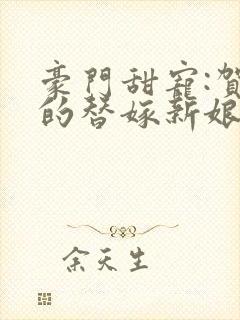 豪門甜寵:賀
的替嫁新娘
余天生